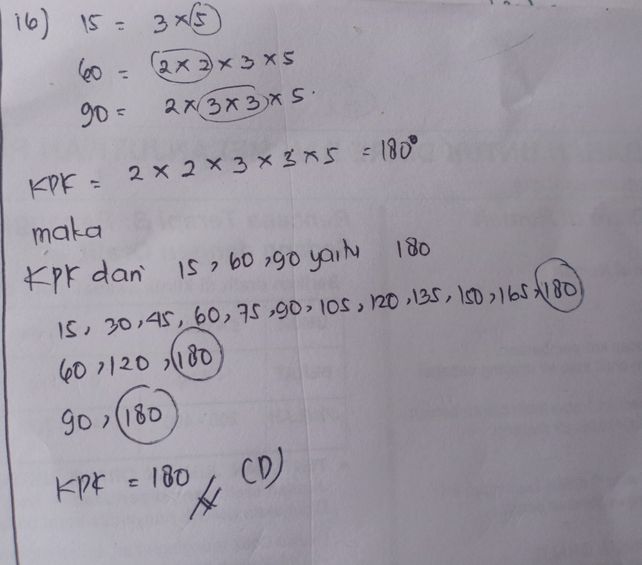 16) 15 = 3 x 5
60 = 2 x 2 x 3 x 5
90 = 2 x 3 x 3 x 5
KPK = 2 x 2 x 3 x 3 x 5 = 180
maka
KPK dari 15, 60, 90 yaitu 180
15, 30, 45, 60, 75, 90, 105, 120, 135, 150, 165, 180
60, 120, 180
90, 180
KPK = 180 (D)